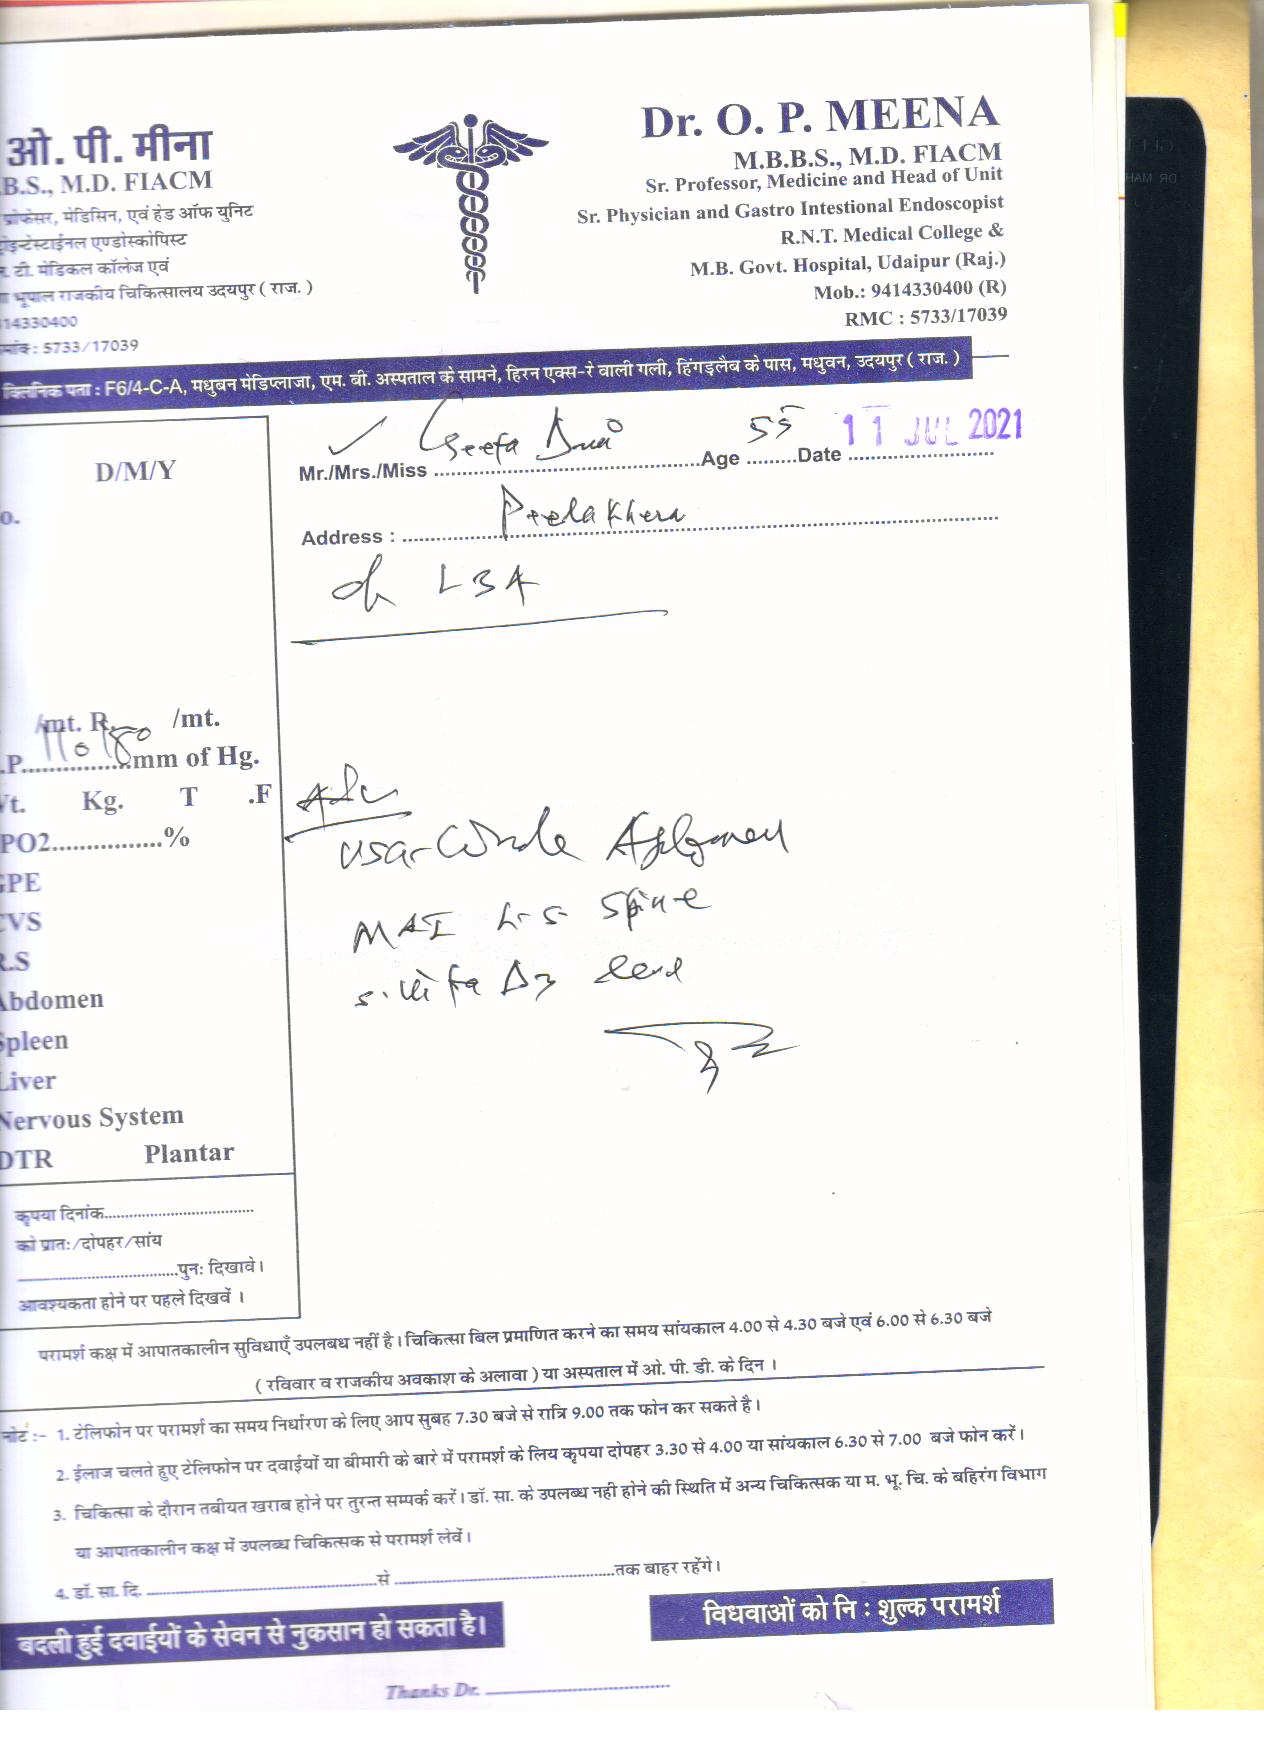 ओ. पी. मीना
B.S., M.D. FIACM
प्रोफेसर, मेडिसिन, एवं हेड ऑफ यूनिट
ट्रोइन्टेस्टाईनल एण्डोस्कोपिस्ट
. टी. मेडिकल कॉलेज एवं
भूपाल राजकीय चिकित्सालय उदयपुर ( राज. )
414330400
मांक : 5733/17039
Dr. O. P. MEENA
M.B.B.S., M.D. FIACM
Sr. Professor, Medicine and Head of Unit
Sr. Physician and Gastro Intestional Endoscopist
R.N.T. Medical College &
M.B. Govt. Hospital, Udaipur (Raj.)
Mob.: 9414330400 (R)
RMC : 5733/17039
क्लिनिक पता : F6/4-C-A, मधुबन मेडिप्लाजा, एम. बी. अस्पताल के सामने, हिरन एक्स-रे वाली गली, हिंगड़लैब के पास, मधुवन, उदयपुर ( राज. )
Mr./Mrs./Miss Geeta Age 55 Date 11 JUL 2021
Address : Peelakhera
LBA
D/M/Y
o.
/mt. R. /mt.
.P. 110/80 mm of Hg.
Vt. Kg. T .F
PO2................%
GPE
CVS
R.S
Abdomen
Spleen
Liver
Nervous System
DTR Plantar
Adv
USG-Whole Abdomen
MRI L-S Spine
S. Vit D3 level
कृपया दिनांक
को प्रातः/दोपहर/सांय
पुनः दिखावे।
आवश्यकता होने पर पहले दिखवें ।
परामर्श कक्ष में आपातकालीन सुविधाएँ उपलबध नहीं है। चिकित्सा बिल प्रमाणित करने का समय सांयकाल 4.00 से 4.30 बजे एवं 6.00 से 6.30 बजे
( रविवार व राजकीय अवकाश के अलावा ) या अस्पताल में ओ. पी. डी. के दिन ।
नोट :- 1. टेलिफोन पर परामर्श का समय निर्धारण के लिए आप सुबह 7.30 बजे से रात्रि 9.00 तक फोन कर सकते है।
2. ईलाज चलते हुए टेलिफोन पर दवाईयों या बीमारी के बारे में परामर्श के लिय कृपया दोपहर 3.30 से 4.00 या सांयकाल 6.30 से 7.00 बजे फोन करें।
3. चिकित्सा के दौरान तबीयत खराब होने पर तुरन्त सम्पर्क करें। डॉ. सा. के उपलब्ध नही होने की स्थिति में अन्य चिकित्सक या म. भू. चि. के बहिरंग विभाग
या आपातकालीन कक्ष में उपलब्ध चिकित्सक से परामर्श लेवें।
4. डॉ. सा. दि. से तक बाहर रहेंगे।
बदली हुई दवाईयों के सेवन से नुकसान हो सकता है।
विधवाओं को नि : शुल्क परामर्श
Thanks Dr.